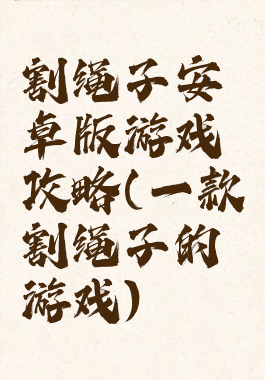 割绳子安
卓版游戏
攻略(一款
割绳子的
游戏)